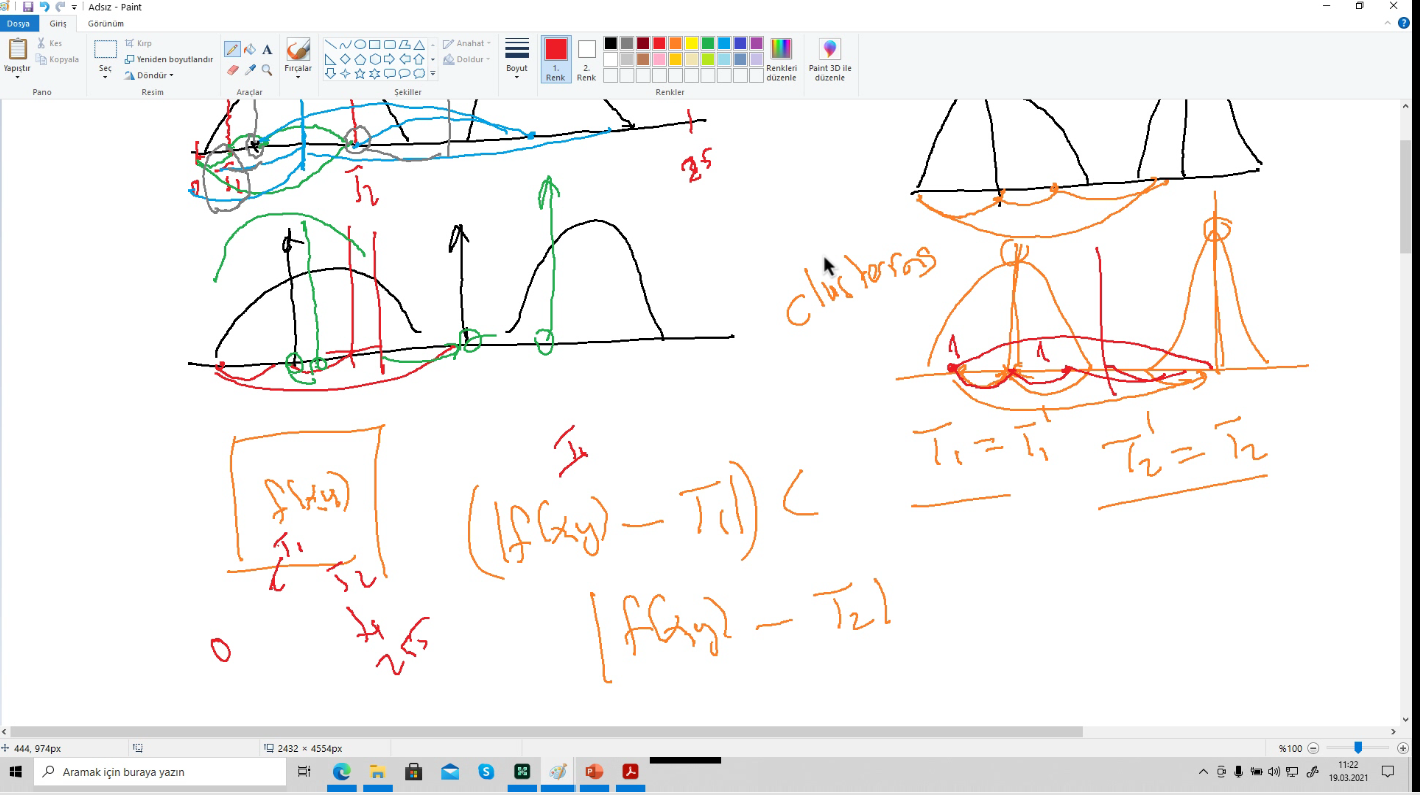 Adsız - Paint
Dosya Giriş Görünüm
Yapıştır
Kes
Kopyala
Pano
Seç
Kırp
Yeniden boyutlandır
Döndür
Resim
A
Araçlar
Fırçalar
Anahat
Doldur
Şekiller
Boyut
1.
Renk
2.
Renk
Renkleri
düzenle
Renkler
Paint 3D ile
düzenle
T2
T1 = T1' T2' = T2
f(x,y)
T1
T2
0
255
(|f(x,y) - T1|) <
|f(x,y) - T2|
444, 974px
2432 × 4554px
%100
Aramak için buraya yazın
11:22
19.03.2021